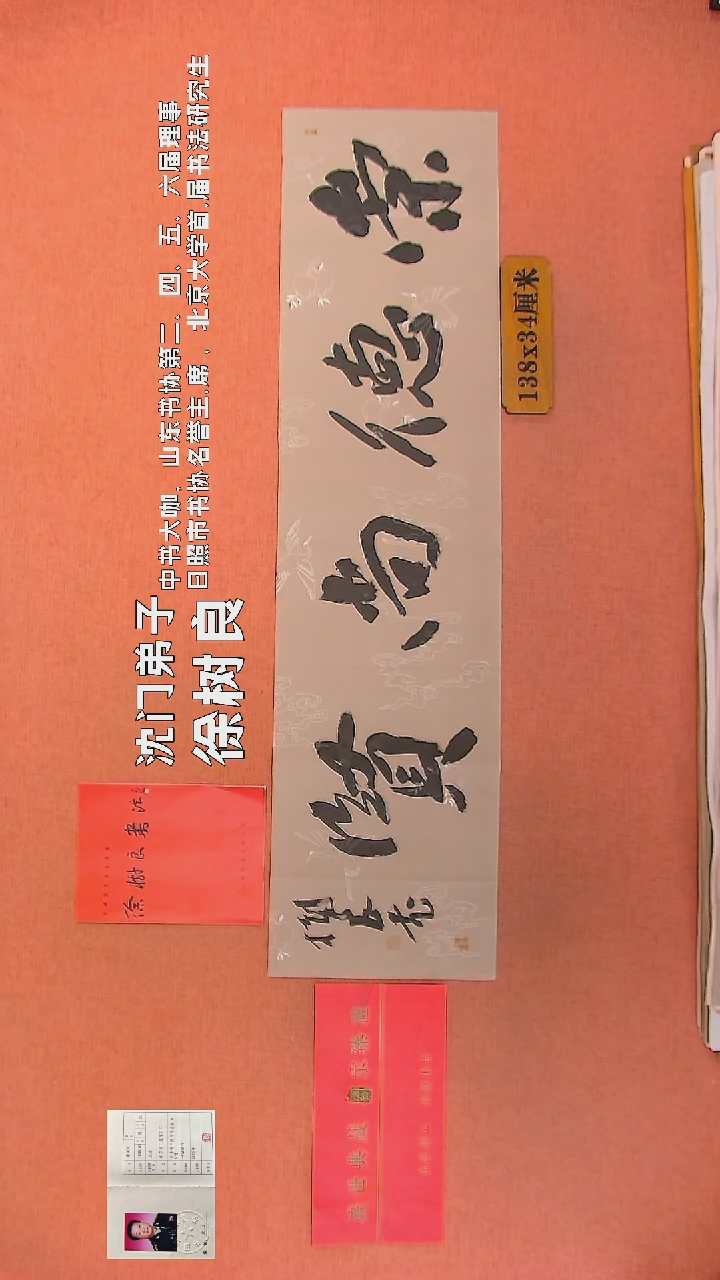 沈门弟子
徐树良
中书大咖，山东书协第二、四、五、六届理事
日照市书协名誉主席，北京大学首届书法研究生
崇德尚賢
138x34厘米
徐樹良書法
盛世典藏